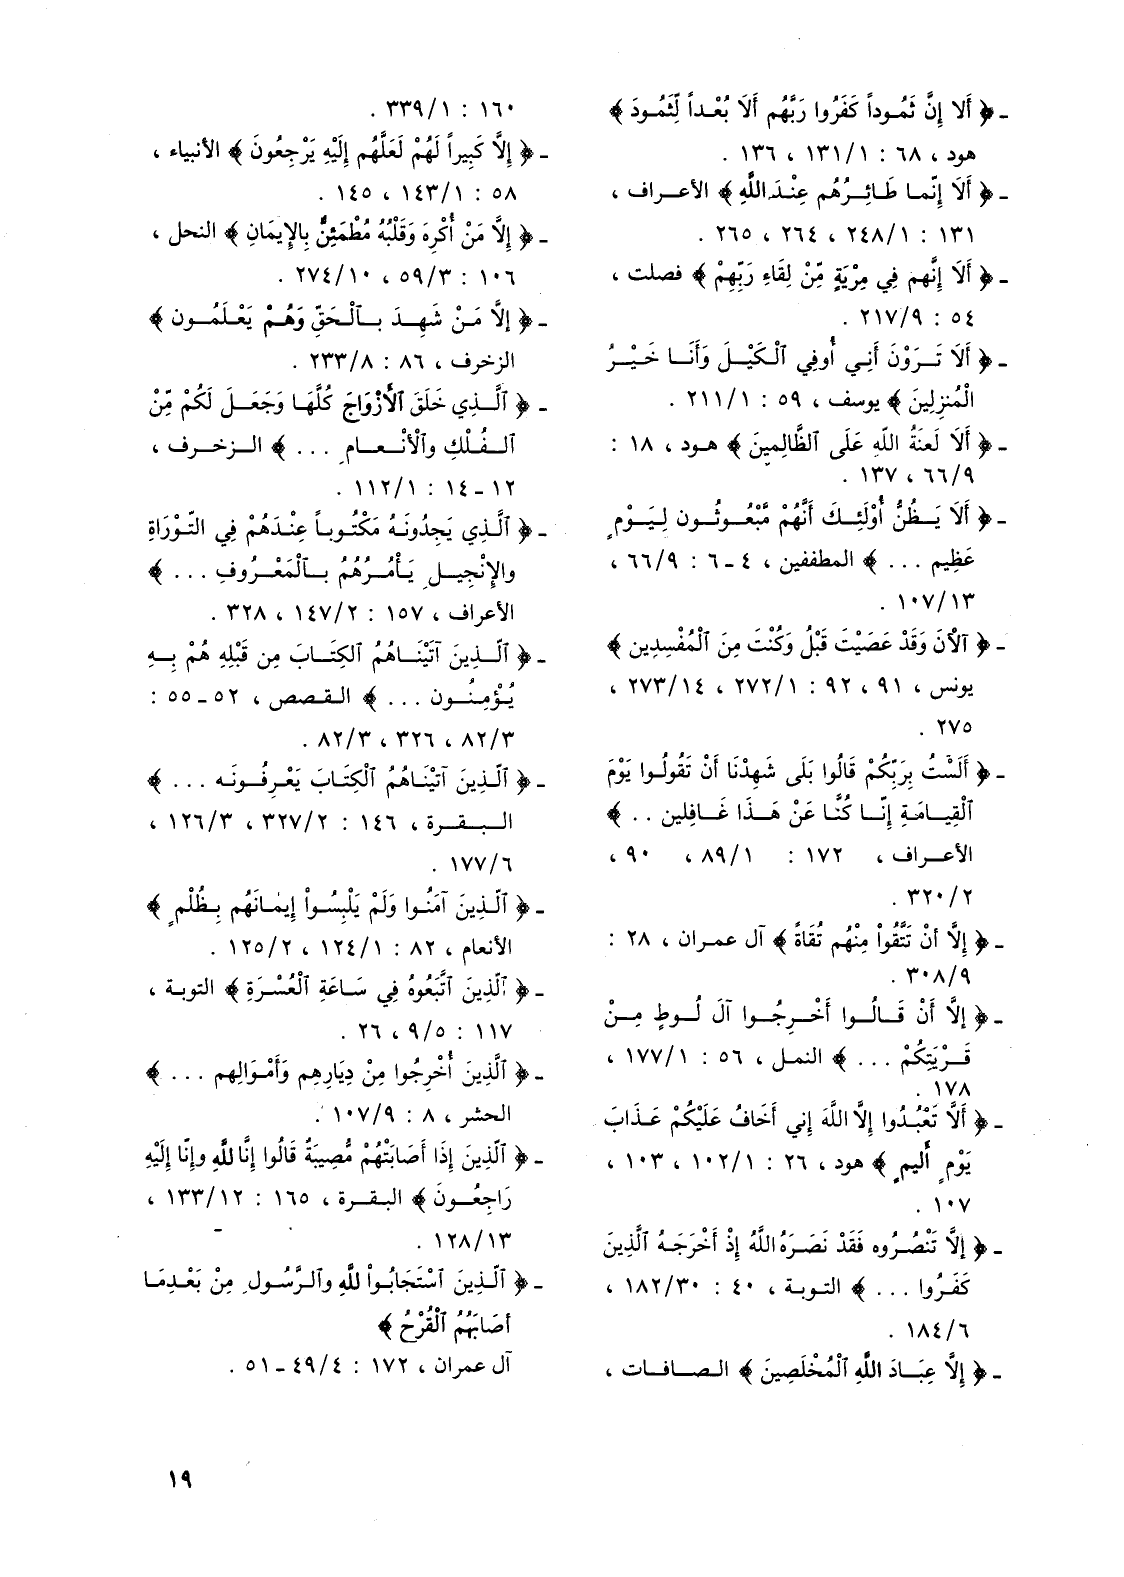 - ﴿ أَلا إِنَّ ثَمُوداً كَفَرُوا رَبَّهُم أَلَا بُعْداً لِّثَمُودَ ﴾
هود ، ٦٨ : ١٣١/١ ، ١٣٦ .
- ﴿ أَلَا إِنَّما طَائِرُهُم عِنْدَ اللَّهِ ﴾ الأعراف ،
١٣١ : ٢٤٨/١ ، ٢٦٤ ، ٢٦٥ .
- ﴿ أَلَا إِنَّهم فِي مِرْيَةٍ مِّنْ لِقَاءِ رَبِّهِمْ ﴾ فصلت ،
٥٤ : ٢١٧/٩ .
- ﴿ أَلَا تَرَوْنَ أَنِي أُوفِي ٱلْكَيْلَ وَأَنَا خَيْرُ
الْمُنزِلِينَ ﴾ يوسف ، ٥٩ : ٢١١/١ .
- ﴿ أَلَا لَعنَةُ اللَّهِ عَلَى ٱلظَّالِمِينَ ﴾ هود ، ١٨ :
٦٦/٩ ، ١٣٧ .
- ﴿ أَلَا يَظُنُّ أُوْلَئِكَ أَنَّهُمْ مَّبْعُوثُون لِيَوْمٍ
عَظِيم ... ﴾ المطففين ، ٤ - ٦ : ٦٦/٩ ،
١٠٧/١٣ .
- ﴿ آلْآنَ وَقَدْ عَصَيْتَ قَبْلُ وَكُنْتَ مِنَ ٱلْمُفْسِدِين ﴾
يونس ، ٩١ ، ٩٢ : ٢٧٢/١ ، ٢٧٣/١٤ ،
٢٧٥ .
- ﴿ أَلَسْتُ بِرَبِّكُمْ قَالُوا بَلَى شَهِدْنَا أَنْ تَقُولُوا يَوْمَ
ٱلْقِيَامَةِ إِنَّا كُنَّا عَنْ هَذَا غَافِلين .. ﴾
الأعراف ، ١٧٢ : ٨٩/١ ، ٩٠ ،
٣٢٠/٢ .
- ﴿ إِلاَّ أنْ تَتَّقُواْ مِنْهُم تُقَاةً ﴾ آل عمران ، ٢٨ :
٣٠٨/٩ .
- ﴿ إِلاَّ أَنْ قَالُوا أَخْرِجُوا آلَ لُوطٍ مِنْ
قَرْيَتِكُمْ ... ﴾ النمل ، ٥٦ : ١٧٧/١ ،
١٧٨ .
- ﴿ أَلَّا تَعْبُدُوا إِلاَّ اللَّهَ إِنِي أَخَافُ عَلَيْكُمْ عَذَابَ
يَوْمٍ أَلِيمٍ ﴾ هود ، ٢٦ : ١٠٢/١ ، ١٠٣ ،
١٠٧ .
- ﴿ إلاَّ تَنْصُرُوه فَقَدْ نَصَرَهُ اللَّهُ إِذْ أَخْرَجَهُ ٱلَّذِينَ
كَفَرُوا ... ﴾ التوبة ، ٤٠ : ١٨٢/٣٠ ،
١٨٤/٦ .
- ﴿ إِلاَّ عِبَادَ اللَّهِ ٱلْمُخْلَصِينَ ﴾ الصافات ،
١٦٠ : ٣٣٩/١ .
- ﴿ إِلاَّ كَبِيراً لَهُمْ لَعَلَّهُم إِلَيْهِ يَرْجِعُونَ ﴾ الأنبياء ،
٥٨ : ١٤٣/١ ، ١٤٥ .
- ﴿ إِلاَّ مَنْ أُكْرِهَ وَقَلْبُهُ مُطْمَئِنٌّ بِالإِيمَانِ ﴾ النحل ،
١٠٦ : ٥٩/٣ ، ٢٧٤/١٠ .
- ﴿ إلاَّ مَنْ شَهِدَ بِٱلْحَقِّ وَهُمْ يَعْلَمُون ﴾
الزخرف ، ٨٦ : ٢٣٣/٨ .
- ﴿ ٱلَّذِي خَلَقَ ٱلْأَزْوَاجَ كُلَّهَا وَجَعَلَ لَكُمْ مِّنْ
ٱلفُلْكِ وٱلْأَنْعامِ ... ﴾ الزخرف ،
١٢ - ١٤ : ١١٢/١ .
- ﴿ ٱلَّذِي يَجِدُونَهُ مَكْتُوباً عِنْدَهُمْ فِي التَّوْرَاةِ
والإنْجيلِ يَأْمُرُهُمْ بِٱلْمَعْرُوفِ ... ﴾
الأعراف ، ١٥٧ : ١٤٧/٢ ، ٣٢٨ .
- ﴿ ٱلَّذِينَ آتَيْنَاهُمُ ٱلكِتَابَ مِن قَبْلِهِ هُمْ بِهِ
يُؤْمِنُون ... ﴾ القصص ، ٥٢ - ٥٥ :
٨٢/٣ ، ٣٢٦ ، ٨٢/٣ .
- ﴿ ٱلَّذِينَ آتَيْنَاهُمُ ٱلْكِتَابَ يَعْرِفُونَه ... ﴾
البقرة ، ١٤٦ : ٣٢٧/٢ ، ١٢٦/٣ ،
١٧٧/٦ .
- ﴿ ٱلَّذِينَ آمَنُوا وَلَمْ يَلْبِسُواْ إِيمَانَهُم بِظُلْمٍ ﴾
الأنعام ، ٨٢ : ١٢٤/١ ، ١٢٥/٢ .
- ﴿ ٱلَّذِينَ ٱتَّبَعُوهُ فِي سَاعَةِ ٱلْعُسْرَةِ ﴾ التوبة ،
١١٧ : ٩/٥ ، ٢٦ .
- ﴿ ٱلَّذِينَ أُخْرِجُوا مِنْ دِيَارِهِم وَأَمْوَالِهِم ... ﴾
الحشر ، ٨ : ١٠٧/٩ .
- ﴿ ٱلَّذِينَ إِذَا أَصَابَتْهُمْ مُّصِيبَةُ قَالُوا إِنَّا للَّهِ وإِنَّا إِلَيْهِ
رَاجِعُونَ ﴾ البقرة ، ١٦٥ : ١٣٣/١٢ ،
١٢٨/١٣ .
- ﴿ ٱلَّذِينَ ٱسْتَجَابُواْ للَّهِ وٱلرَّسُولِ مِنْ بَعْدِمَا
أصَابَهُمُ ٱلْقُرْحُ ﴾
آل عمران ، ١٧٢ : ٤٩/٤ - ٥١ .
١٩